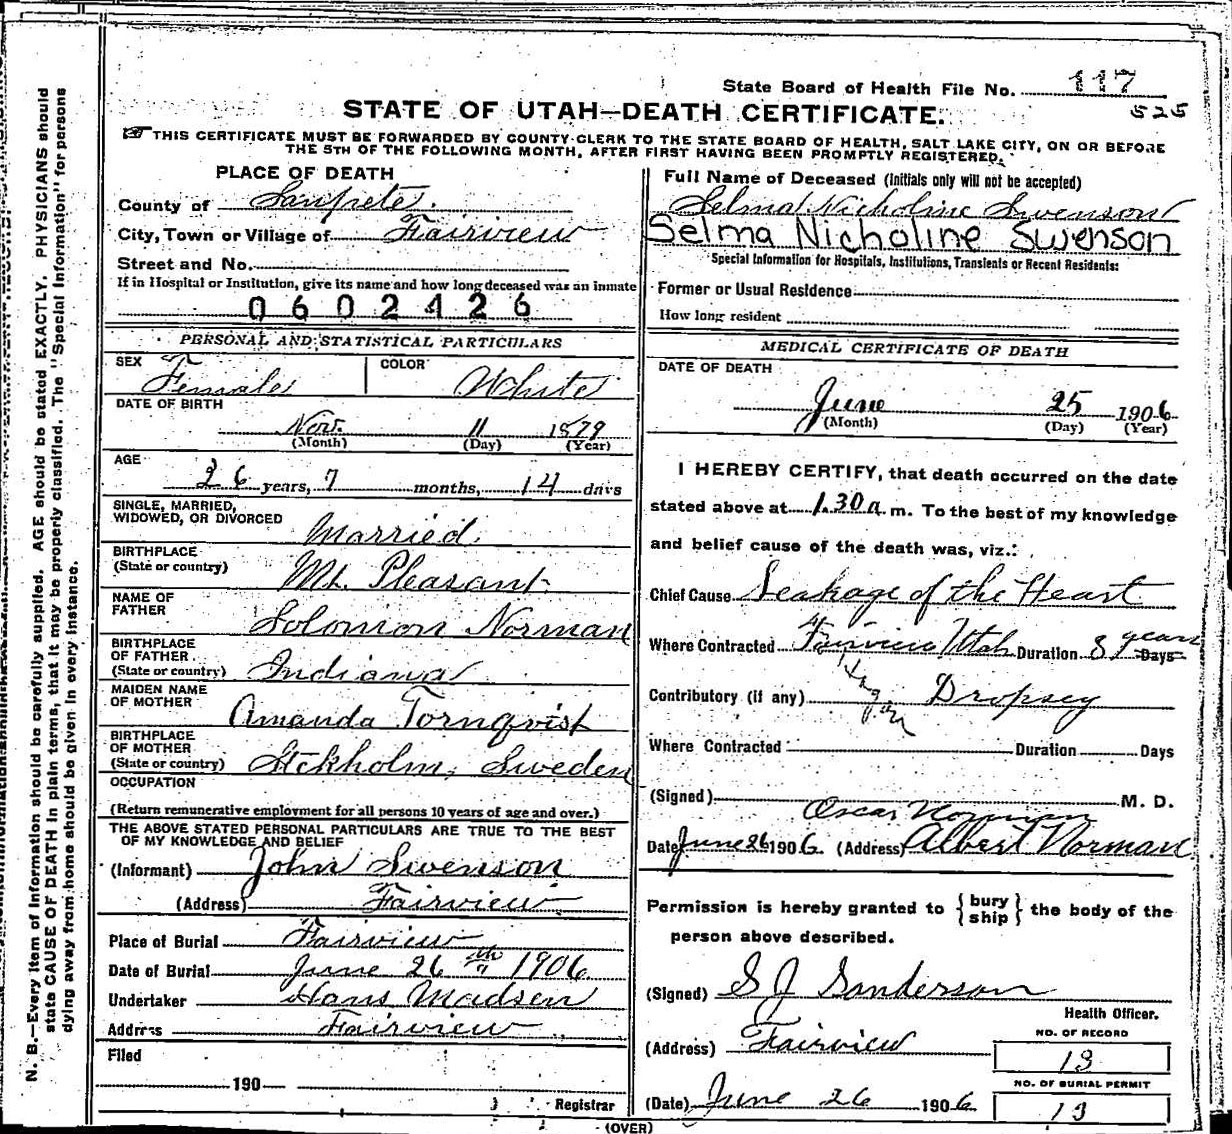 State Board of Health File No. 117
525
STATE OF UTAH—DEATH CERTIFICATE.
☞THIS CERTIFICATE MUST BE FORWARDED BY COUNTY CLERK TO THE STATE BOARD OF HEALTH, SALT LAKE CITY, ON OR BEFORE
THE 5TH OF THE FOLLOWING MONTH, AFTER FIRST HAVING BEEN PROMPTLY REGISTERED.
PLACE OF DEATH
County of Sanpete.
City, Town or Village of Fairview
Street and No.
If in Hospital or Institution, give its name and how long deceased was an inmate
0602426
PERSONAL AND STATISTICAL PARTICULARS
SEX Female COLOR White
DATE OF BIRTH
Nov. 11 1879
(Month) (Day) (Year)
AGE
26 years, 7 months, 14 days
SINGLE, MARRIED,
WIDOWED, OR DIVORCED Married.
BIRTHPLACE
(State or country) Mt. Pleasant.
NAME OF
FATHER Solomon Norman
BIRTHPLACE
OF FATHER
(State or country) Indiana
MAIDEN NAME
OF MOTHER Amanda Tornqvist
BIRTHPLACE
OF MOTHER
(State or country) Stckholm, Sweden
OCCUPATION
(Return remunerative employment for all persons 10 years of age and over.)
THE ABOVE STATED PERSONAL PARTICULARS ARE TRUE TO THE BEST
OF MY KNOWLEDGE AND BELIEF
(Informant) John Swenson
(Address) Fairview
Place of Burial Fairview
Date of Burial June 26th " 1906.
Undertaker Hans Madsen
Address Fairview
Filed
190
Registrar
Full Name of Deceased (Initials only will not be accepted)
Selma Nicholine Swenson
Selma Nicholine Swenson
Special Information for Hospitals, Institutions, Transients or Recent Residents:
Former or Usual Residence
How long resident
MEDICAL CERTIFICATE OF DEATH
DATE OF DEATH
June 25 1906
(Month) (Day) (Year)
I HEREBY CERTIFY, that death occurred on the date
stated above at 1.30 a m. To the best of my knowledge
and belief cause of the death was, viz.:
Chief Cause Leakage of the Heart
Where Contracted Fairview Utah Duration 8 years Days
Contributory (if any) Dropsey
Where Contracted Duration Days
(Signed) M. D.
Oscar Norman
Date June 26 1906. (Address) Albert Norman.
Permission is hereby granted to {bury
ship} the body of the
person above described.
(Signed) S J Sanderson
Health Officer.
(Address) Fairview
NO. OF RECORD
13
NO. OF BURIAL PERMIT
(Date) June 26 1906. 13
(OVER)
N. B.—Every item of information should be carefully supplied. AGE should be stated EXACTLY. PHYSICIANS should
state CAUSE OF DEATH in plain terms, that it may be properly classified. The "Special Information" for persons
dying away from home should be given in every instance.